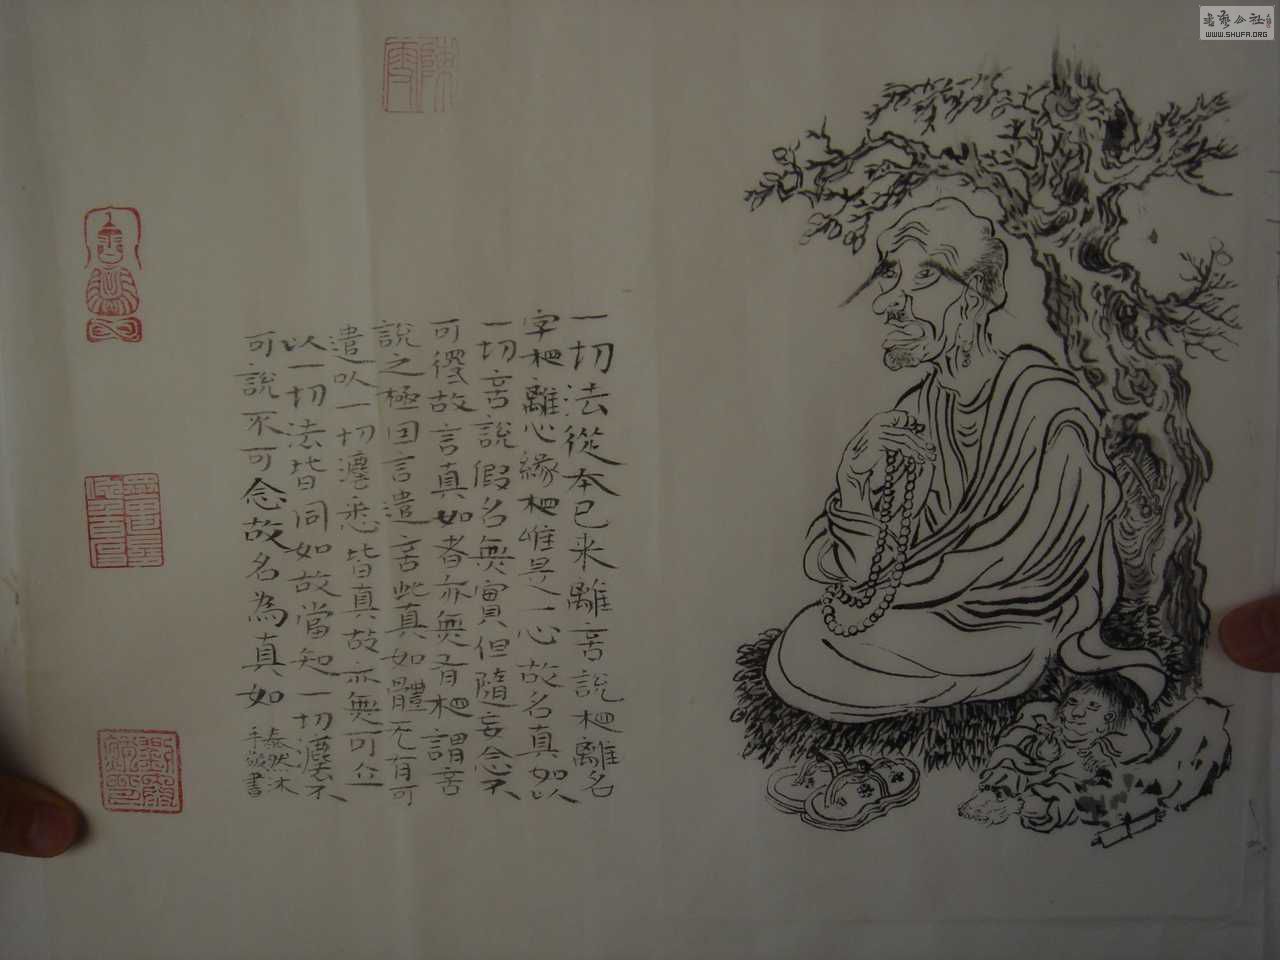 書藝公社
WWW.SHUFA.ORG
一切法從本已来離言說相離名
字相離心緣相唯是一心故名真如以
一切言說假名無實但隨妄念不
可得故言真如者亦無有相謂言
說之極因言遣言此真如體无有可
遣以一切法悉皆真故亦無可立
以一切法皆同如故當知一切法不
可說不可念故名為真如
泰然沐
手敬書